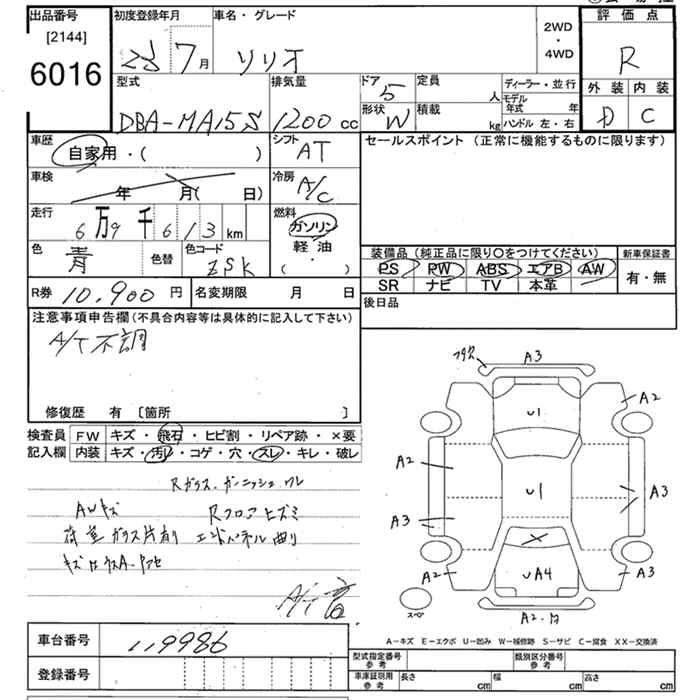 出品番号
[2144]
6016
初度登録年月
23 7 月
車名・グレード
ソリオ
2WD
・
4WD
評価点
R
外装 内装
D C
型式
DBA-MA15S
排気量
1200 cc
ドア
5
形状
W
定員
人
積載
kg
ディーラー・並行
モデル
年式 年
ハンドル 左・右
車歴
自家用・( )
シフト
AT
セールスポイント (正常に機能するものに限ります)
車検
年 月( 日)
冷房
A/C
走行
6 万 9 千 6 1 3 km
燃料
ガソリン
軽油
( )
色
青
色替
色コード
ZSK
装備品 (純正品に限り○をつけてください)
PS PW ABS エアB AW
SR ナビ TV 本革
新車保証書
有・無
R券 10,900 円
名変期限 月 日
後日品
注意事項申告欄(不具合内容等は具体的に記入して下さい)
A/T 不調
修復歴 有 〔箇所 〕
検査員
記入欄
FW キズ・飛石・ヒビ割・リペア跡・×要
内装 キズ・汚レ・コゲ・穴・スレ・キレ・破レ
Rガラス ガーニッシュ ワレ
AWキズ Rフロアヒズミ
荷室 ガラス片有り エンドパネル曲り
A/T音
A3
A2
U1
A2
U1
A3
A3
UA4
A2
A3
スペア
A-キズ E-エクボ U-凹み W-補修跡 S-サビ C-腐食 XX-交換済
車台番号
119986
登録番号
型式指定番号
参考
類別区分番号
参考
車庫証明用
参考
長さ cm 幅 cm 高さ cm